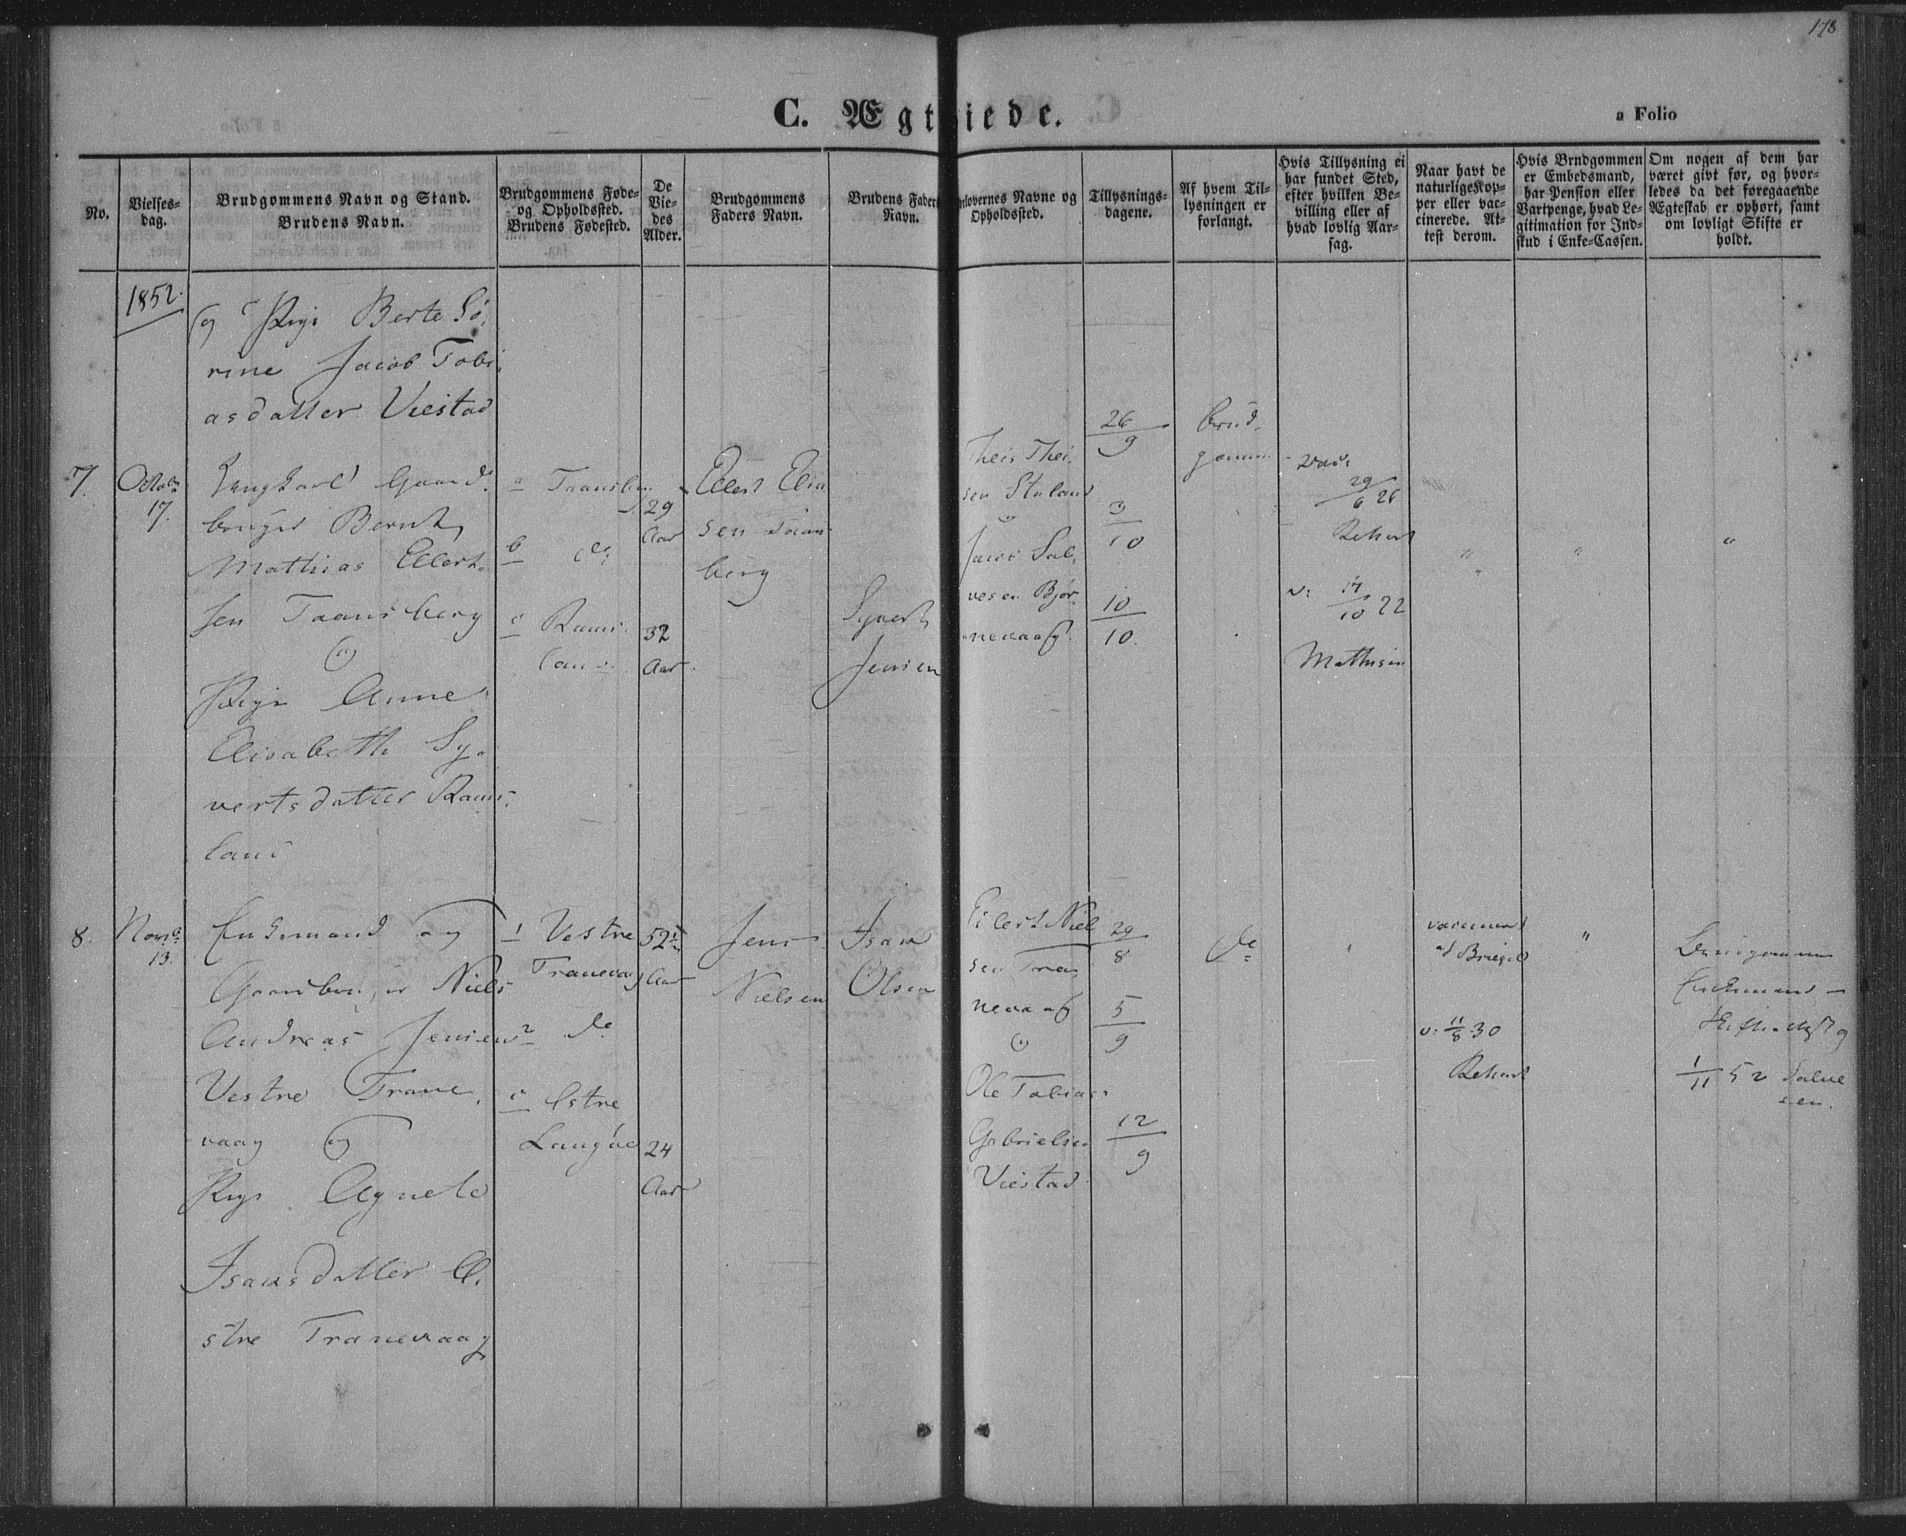 178
C. Ægteviede.
a Folio
No.
Vielses-
dag.
Brudgommens Navn og Stand.
Brudens Navn.
Brudgommens Føde-
og Opholdssted.
Brudens Fødested.
De
Vie-
des
Alder.
Brudgommens
Faders Navn.
Brudens Faders
Navn.
Forlovernes Navne og
Opholdssted.
Tillysnings-
dagene.
Af hvem Til-
lysningen er
forlangt.
Hvis Tillysning ei
har fundet Sted,
efter hvilken Be-
villing eller af
hvad lovlig Aar-
sag.
Naar havt de
naturlige Kop-
per eller vac-
cinerede. At-
test derom.
Hvis Brudgommen
er Embedsmand,
har Pension eller
Vartpenge, hvad Le-
gitimation for Ind-
skud i Enke-Cassen.
Om nogen af dem har
været givt før, og hvor-
ledes da det foregaaende
Ægteskab er ophørt, samt
om lovligt Skifte er
holdt.
1852.
og Pige Berte Sø-
rine Jacob Tobi-
asdatter Viestad
7.
Octobr
17.
Ungkarl Gaard-
bruger Bernt
Mathias Ellert-
sen Taansberg
og
Pige Anne
Elisabeth Sy-
vertsdatter Rams-
land
a Taansberg
b do
c Rams-
land
29
Aar
32
Aar
Ellert Elia
sen Taans
berg
Syvert
Jensen
Theis Thei-
sen Stuland
Jacob Sal-
vesen Bjør-
nevaag
26/9
3/10
10/10
Brud-
gommen
vac:
29/6 26
v: 14/10 22
Mathisen
" " " "
8.
Novbr
13.
Enkemand og
Gaardbruger Niels
Andreas Jensen
Vestre Trane-
vaag og
Pige Agnete
Isaksdatter Ø-
stre Tranevaag
1 Vestre
Tranevaag
2 do
c Østre
Langøe
52 1/2
Aar
24
Aar
Jens
Nielsen
Isak
Olsen
Eilert Niel
sen Tra-
nevaag
og
Ole Tobias
Gabrielsen
Viestad
29/8
5/9
12/9
do
"
v: 11/8 30
"
Brudgommen
Enkemand -
1/11 52 Salve
sen.